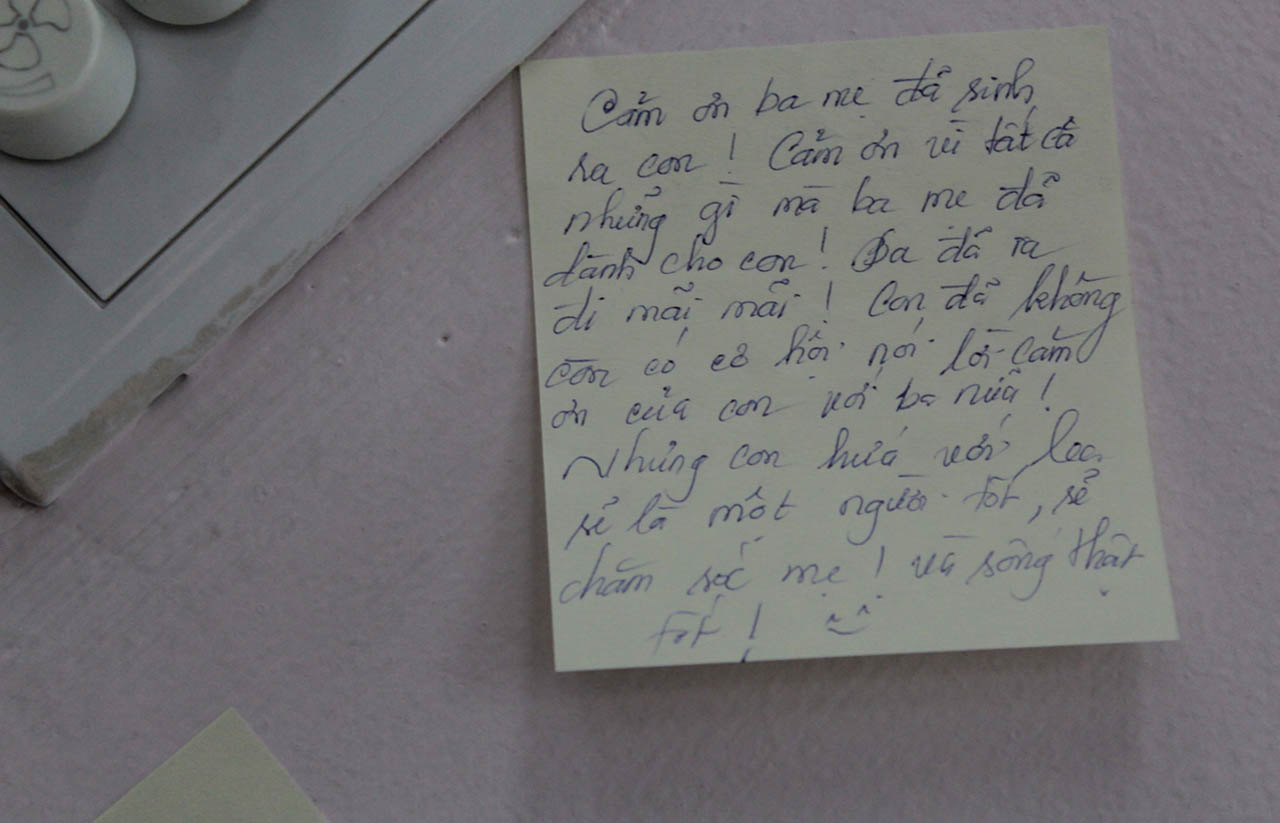 Cảm ơn ba mẹ đã sinh
ra con! Cảm ơn vì tất cả
những gì mà ba mẹ đã
dành cho con! Ba đã ra
đi mãi mãi! Con đã không
còn có cơ hội nói lời cảm
ơn của con với ba nữa!
Nhưng con hứa với ba
sẽ là một người tốt, sẽ
chăm sóc mẹ! và sống thật
tốt!